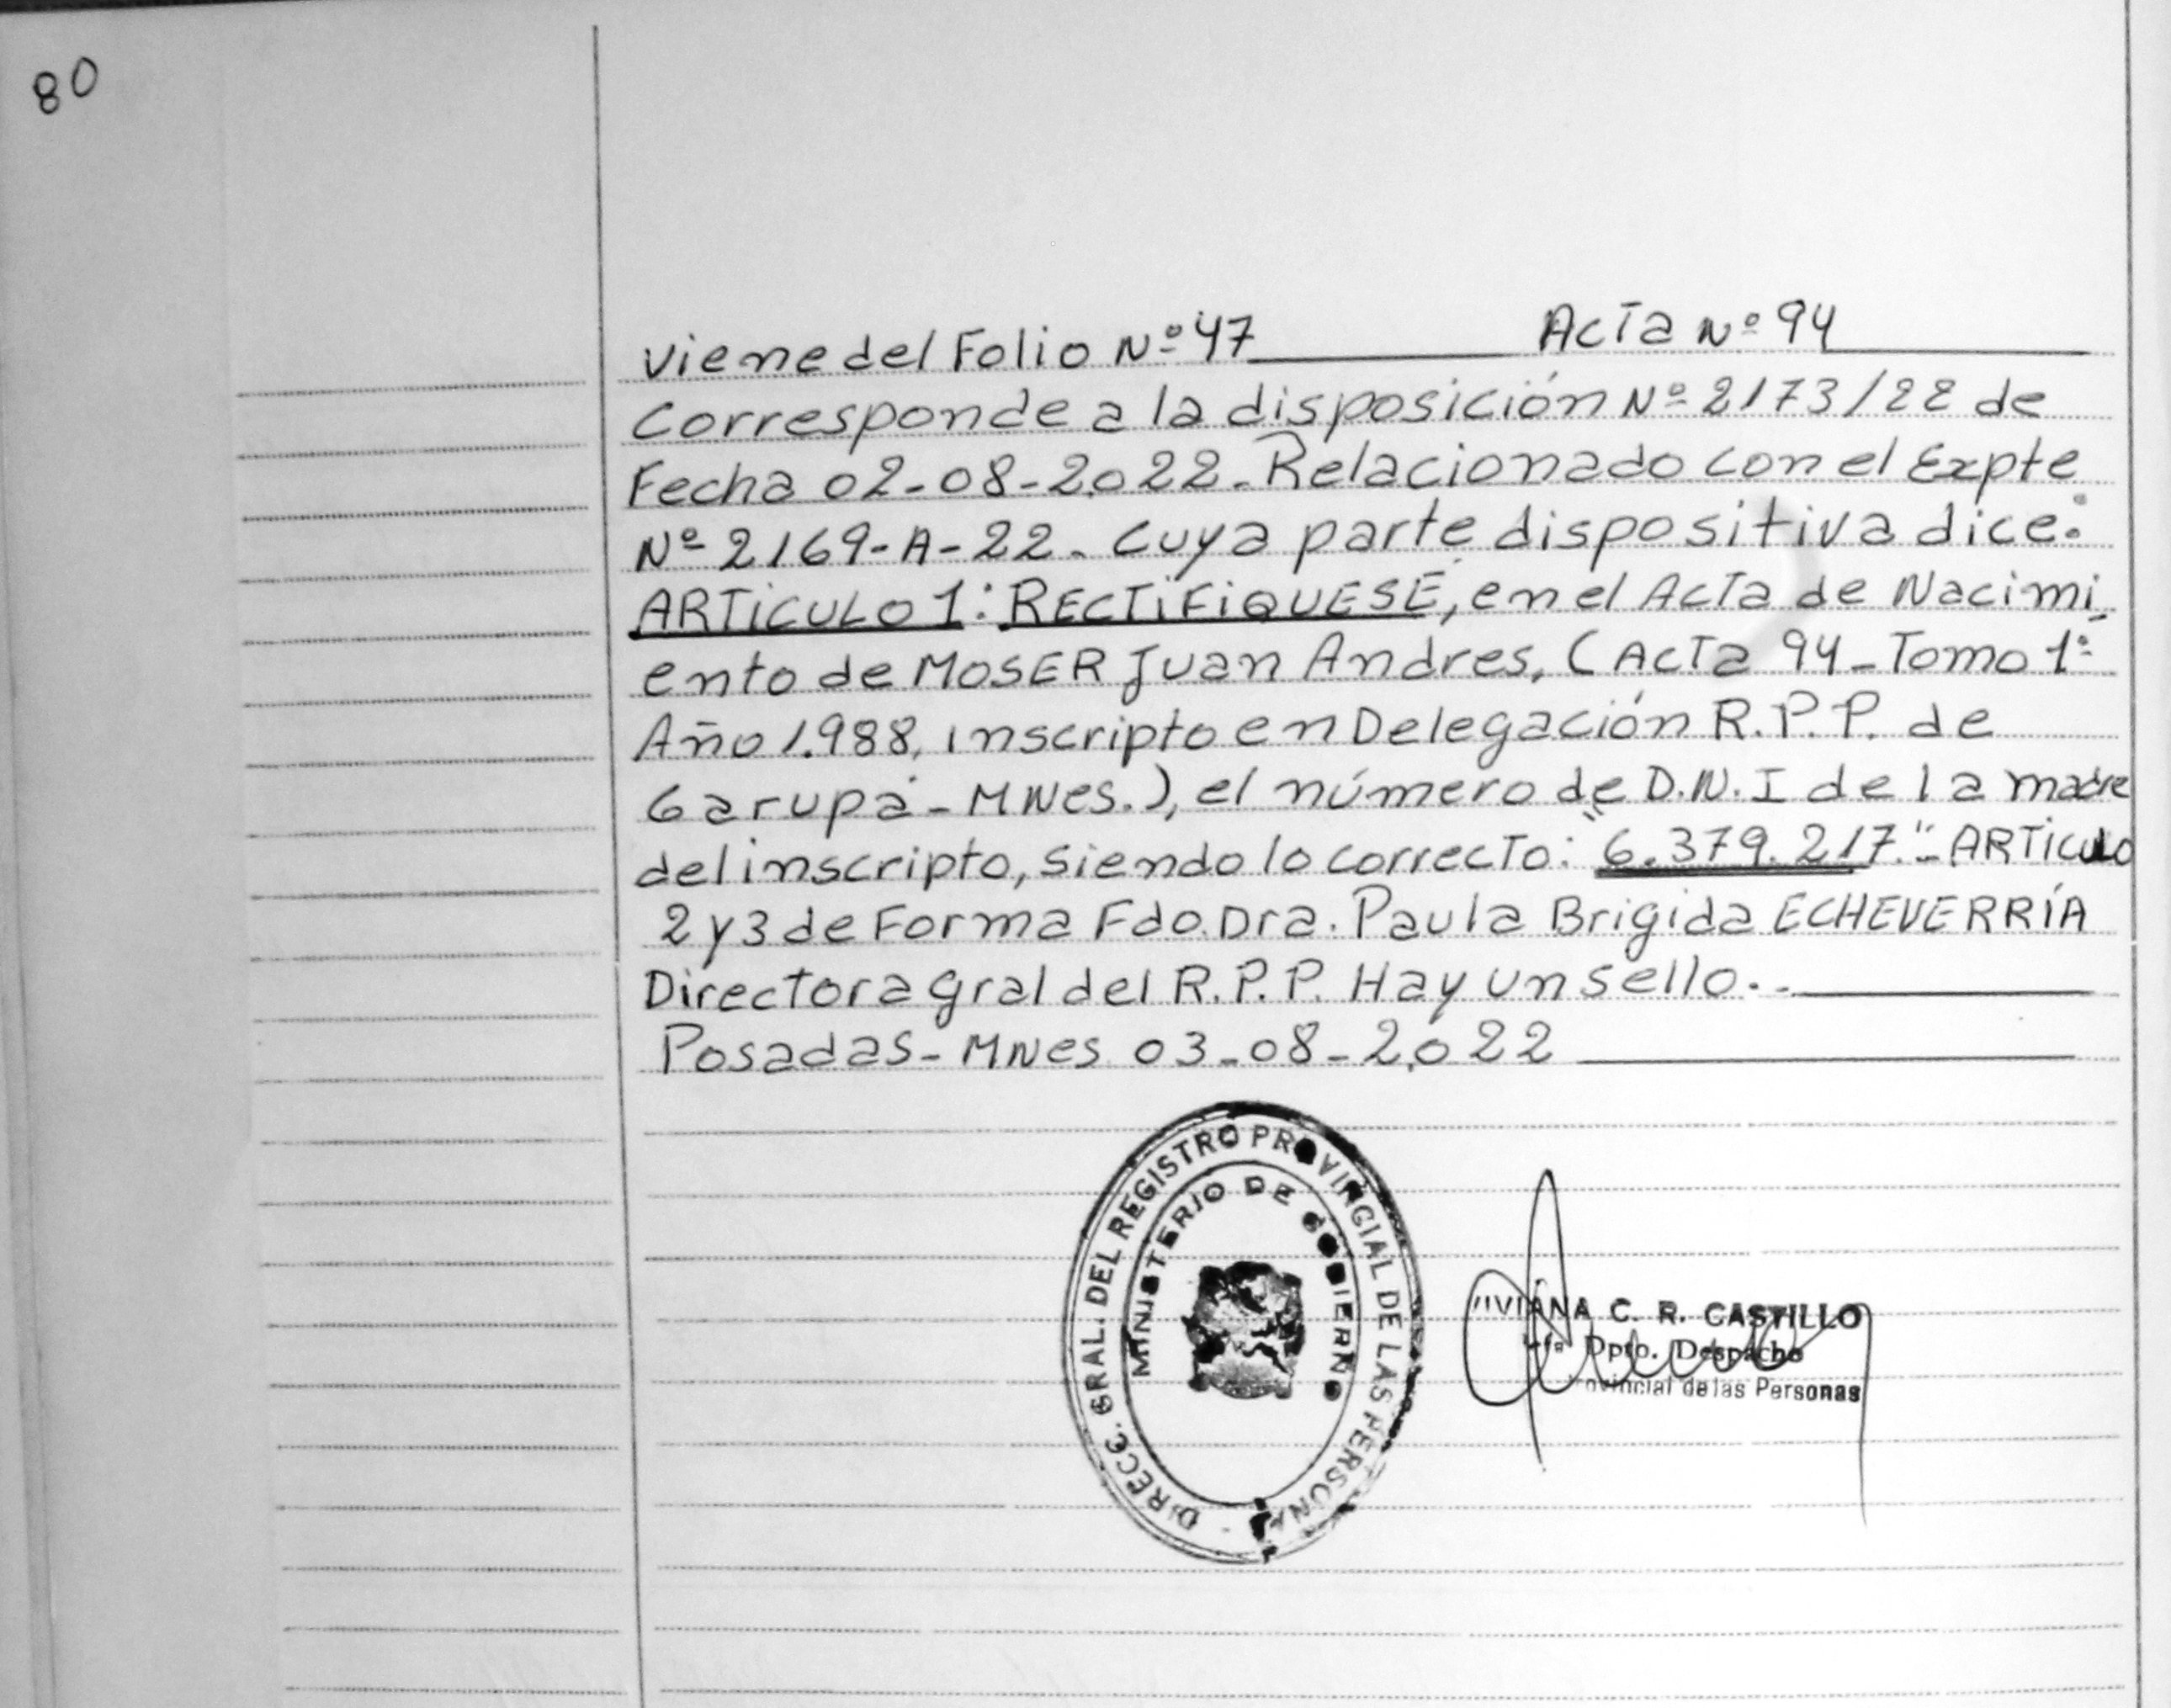 80
Viene del Folio Nº 47 Acta Nº 94
Corresponde a la disposición Nº 2173/22 de
Fecha 02-08-2.022. Relacionado con el Expte
Nº 2169-A-22. Cuya parte dispositiva dice:
ARTICULO 1: RECTIFIQUESE, en el Acta de Nacimi
ento de MOSER Juan Andres, (Acta 94 - Tomo 1º
Año 1.988, inscripto en Delegación R.P.P. de
Garupá - MNes.), el número de D.N.I de la madre
del inscripto, siendo lo correcto: "6.379.217." - ARTICULO
2 y 3 de Forma Fdo. Dra. Paula Brigida ECHEVERRÍA
Directora gral del R.P.P. Hay un sello. -
Posadas - MNes 03-08-2.022
DIRECC. GRAL. DEL REGISTRO PROVINCIAL DE LAS PERSONA
MINISTERIO DE GOBIERNO
VIVIANA C. R. CASTILLO
Dpto. Despacho
ovincial de las Personas